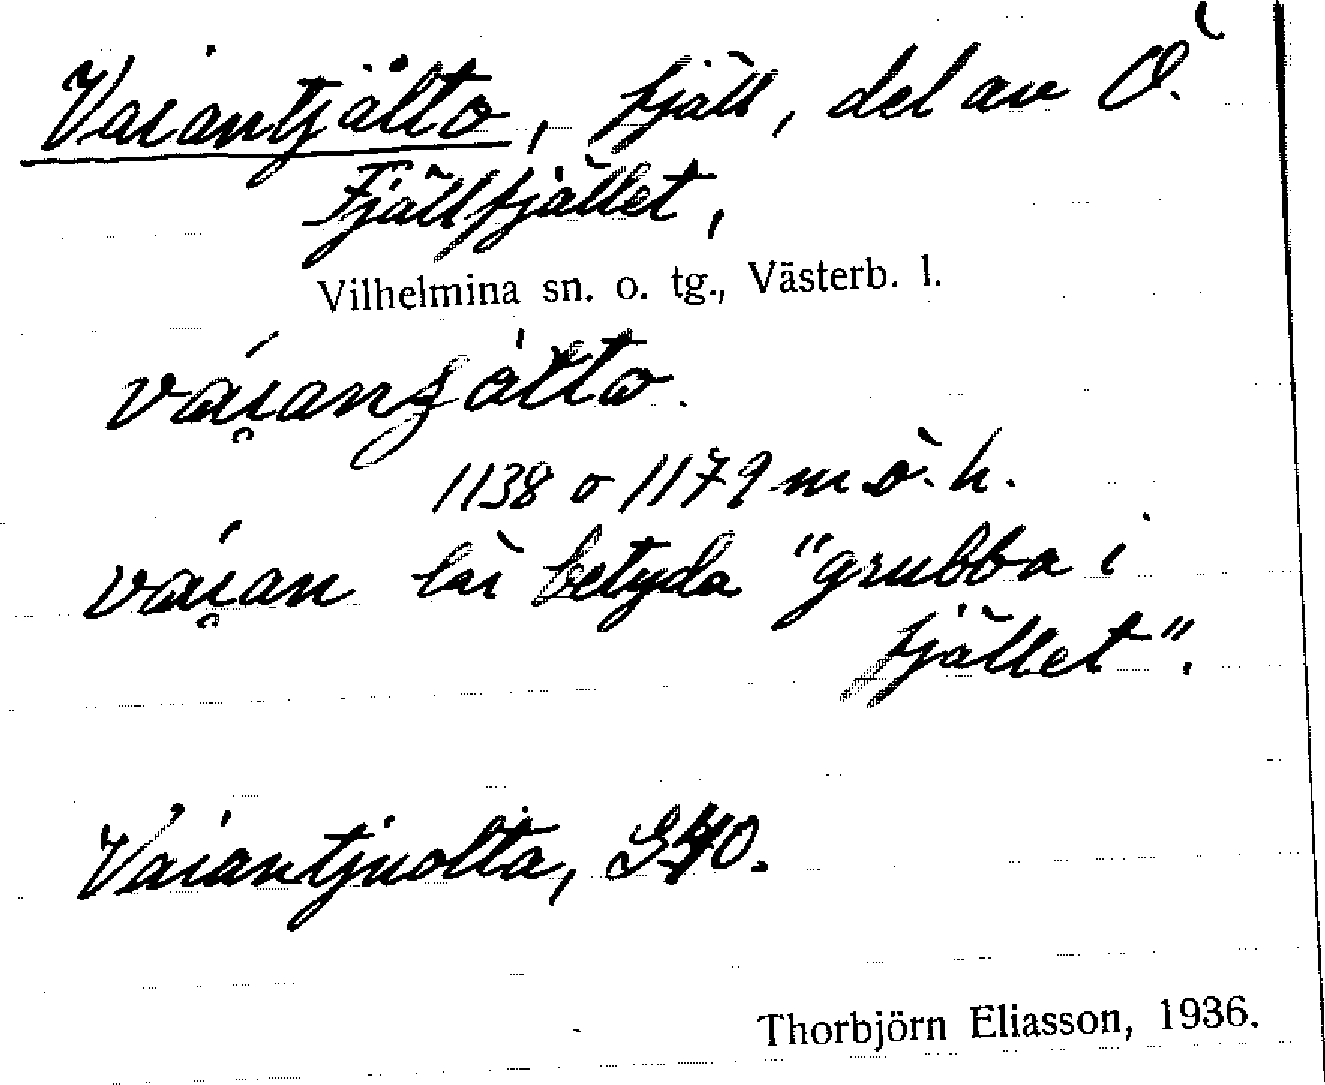 Vaiantjålto, fjäll, del av Ö.
Fjällfjället,
Vilhelmina sn. o. tg., Västerb. l.
1138 o 1179 m ö. h.
lär betyda "grubba i
fjället".
Vaiantjuolta,
Thorbjörn Eliasson, 1936.